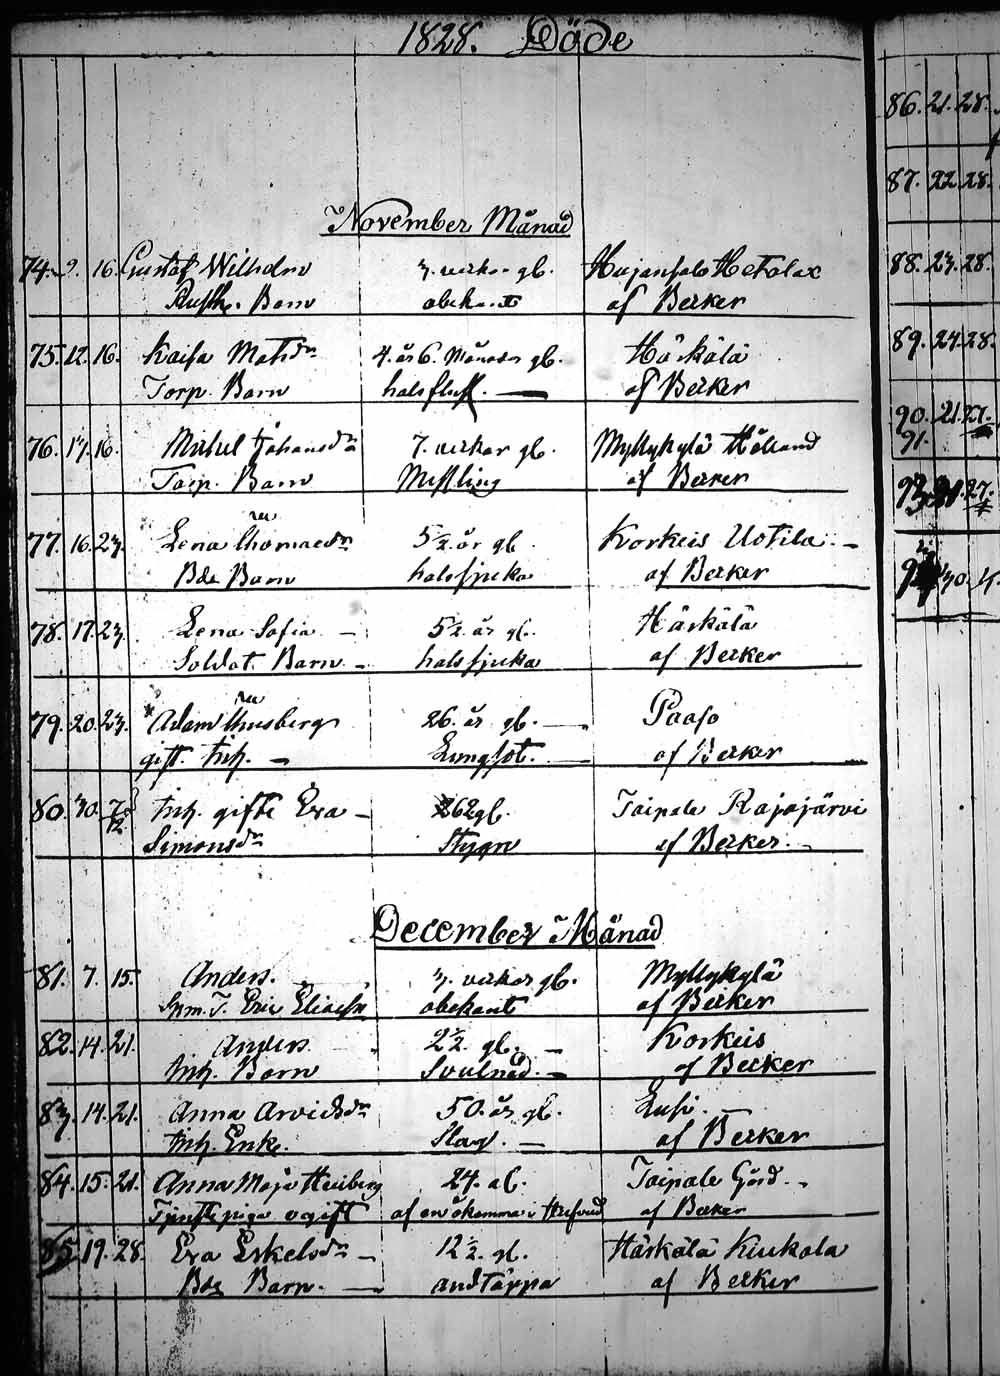 1828. Döde
November Månad
74. 9. 16. Gustaf Wilhelm 3. veckor gl.
Barn obekant af Becker
75. 12. 16. Kaisa Matsdr 4. år 6. Månader gl. Härkälä
Torp. Barn halsfluss. — af Becker
76. 17. 16. Michel Johansdr 7. veckor gl. Myllykylä
Torp. Barn Messling af Becker
77. 16. 23. Lena Thomasdr 5½ år gl. Korkeis Uotila —
Bde Barn halssjuka af Becker
78. 17. 23. Lena Sofia — 5½ år gl. Härkälä
Soldat. Barn — halssjuka af Becker
79. 20. 23. Adam 26. år gl. — Paaso
gift. Inh. — Lungsot. — af Becker
80. 30. 7/12 Inh. gifte Eva — 62 gl. Taipale Rajajärvi
Simonsdr Stygn af Becker —
December Månad
81. 7. 15. Anders. 3. veckor gl. Myllykylä
Eric obekant af Becker
82. 14. 21. Anders 2½. gl. — Korkeis
Inh. Barn — af Becker
83. 14. 21. Anna Arvidsdr 50. år gl. Lusi.
Inh. Enk. Slag. — af Becker
84. 15. 21. Anna Maja 24. gl. Taipale Gård. -
piga ogift af en åkomma i Hufvud af Becker
85. 19. 28. Eva Erkelsdr — 12½. gl. Härkälä Kiukala
Bde Barn. — andtäppa af Becker
86. 21. 28.
87. 22. 28.
88. 23. 28.
89. 24. 28.
90. 21. 27.
91.
27.
30. 4.